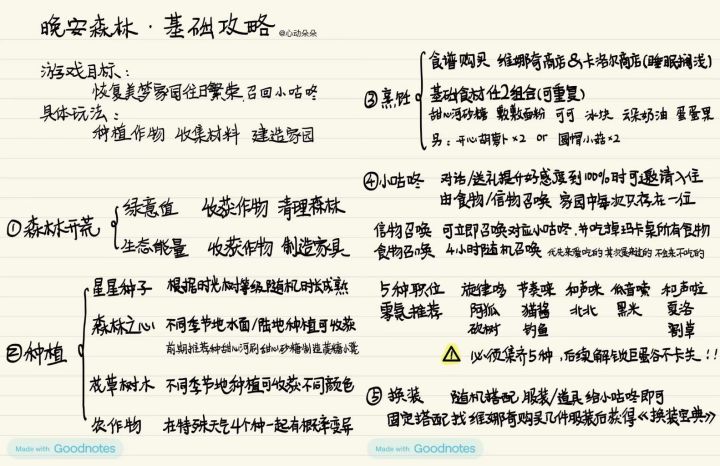 晚安森林·基础攻略 @心动朵朵
游戏目标:
恢复美梦家园往日繁荣,召回小咕咚
具体玩法:
种植作物 收集材料 建造家园
①森林开荒
绿意值 收获作物 清理森林
生态能量 收获作物 制造家具
②种植
星星种子 根据时光树等级随机时长成熟
森林之心 不同季节地水面/陆地种植可收获
前期推荐种甜心河刷甜心砂糖制造蘑糖小藜
花草树木 不同季节地种植可收获不同颜色
农作物 在特殊天气4个种一起有概率变异
Made with Goodnotes
③烹饪
食谱购买 维娜奇商店&卡洛尔商店(睡眠搁浅)
基础食材任2组合(可重复)
甜心河砂糖 敷敷面粉 可可 冰块 云朵奶油 蛋蛋果
另:开心胡萝卜×2 or 圆帽小菇×2
④小咕咚 对话/送礼提升好感度到100%时可邀请入住
由食物/信物召唤 家园中每次只存在一位
信物召唤 可立即召唤对应小咕咚,并吃掉玛卡桌所有食物
食物召唤 4小时随机召唤 优先来爱吃的 其次是来过的 不会来不吃的
5种职位 旋律哆 节奏咪 和声咪 低音嗦 和声啦
零氪推荐 阿狐 猪酱 北北 黑米 夏洛
砍树 钓鱼 割草
⚠ 必须集齐5种,后续解锁巨蛋谷不卡关!!
⑤换装 随机搭配 服装/道具给小咕咚即可
固定搭配 找维娜奇购买几件服装后获得《换装宝典》
Made with Goodnotes